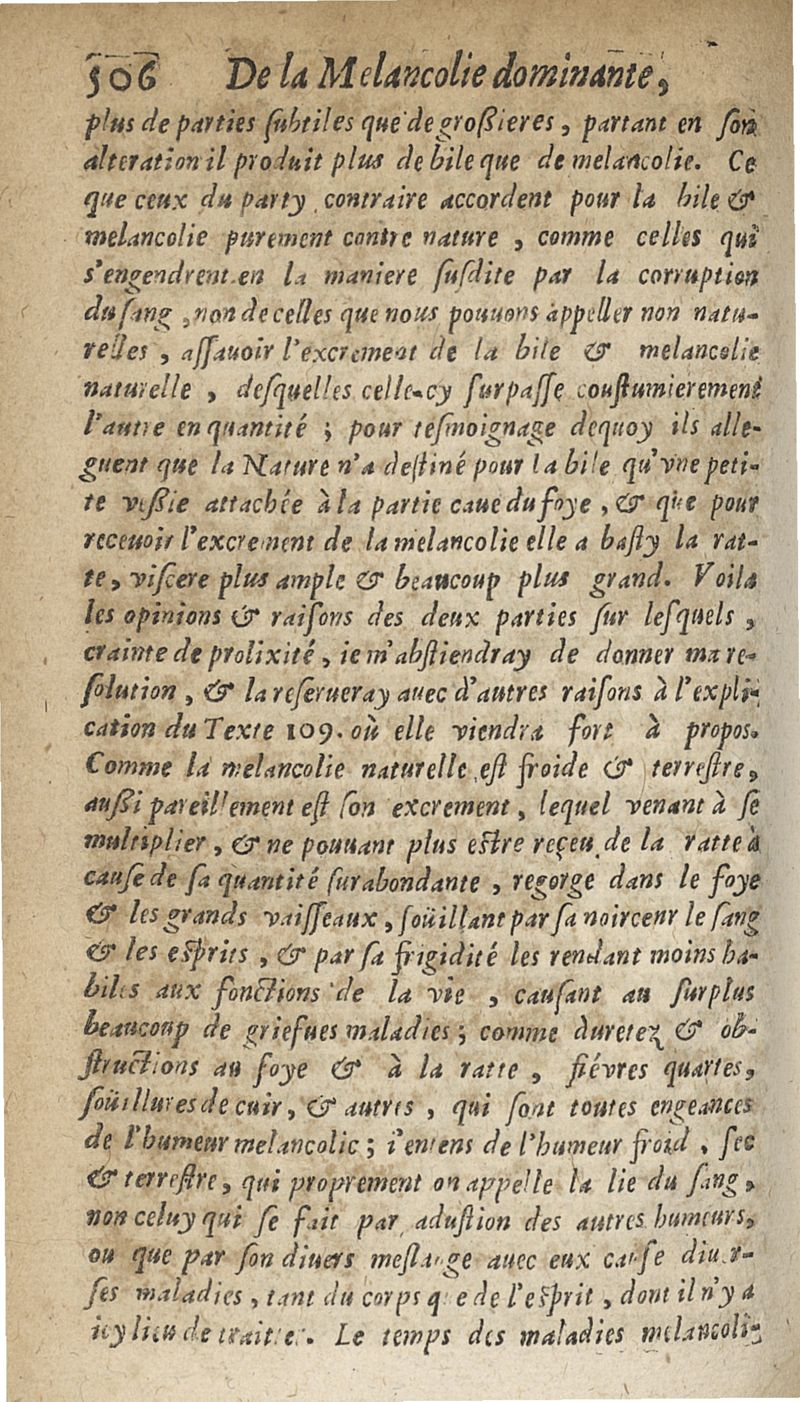 306 De la Melancolie dominante,
plus de parties ſubtiles que de großieres, partant en ſon
alteration il produit plus de bile que de melancolie. Ce
que ceux du party contraire accordent pour la bile &
melancolie purement contre nature, comme celles qui
s'engendrent en la maniere ſuſdite par la corruption
du ſang, non de celles que nous pouuons appeller non natu-
relles, aſſauoir l'excrement de la bile & melancolie
naturelle, deſquelles celle-cy ſurpaſſe couſtumierement
l'autre en quantité; pour teſmoignage dequoy ils alle-
guent que la Nature n'a deſtiné pour la bile qu'vne peti-
te veßie attachée à la partie caue du foye, & que pour
receuoir l'excrement de la melancolie elle a baſty la rat-
te, viſcere plus ample & beaucoup plus grand. Voila
les opinions & raiſons des deux parties ſur leſquels,
crainte de prolixité, ie m'abſtiendray de donner ma re-
ſolution, & la reſerueray auec d'autres raiſons à l'expli-
cation du Texte 109. où elle viendra fort à propos.
Comme la melancolie naturelle eſt froide & terreſtre,
außi pareillement eſt ſon excrement, lequel venant à ſe
multiplier, & ne pouuant plus eſtre reçeu de la ratte à
cauſe de ſa quantité ſurabondante, regorge dans le foye
& les grands vaiſſeaux, ſoüillant par ſa noirceur le ſang
& les eſprits, & par ſa frigidité les rendant moins ha-
biles aux fonctions de la vie, cauſant au ſurplus
beaucoup de griefues maladies; comme duretez & ob-
ſtructions au foye & à la ratte, fiévres quartes,
ſoüillures de cuir, & autres, qui ſont toutes engeances
de l'humeur melancolic; i'entens de l'humeur froid, ſec
& terreſtre, qui proprement on appelle la lie du ſang,
non celuy qui ſe fait par aduſtion des autres humeurs,
ou que par ſon diuers meſlange auec eux cauſe diuer-
ſes maladies, tant du corps que de l'eſprit, dont il n'y a
icy lieu de traitter. Le temps des maladies melancoli-